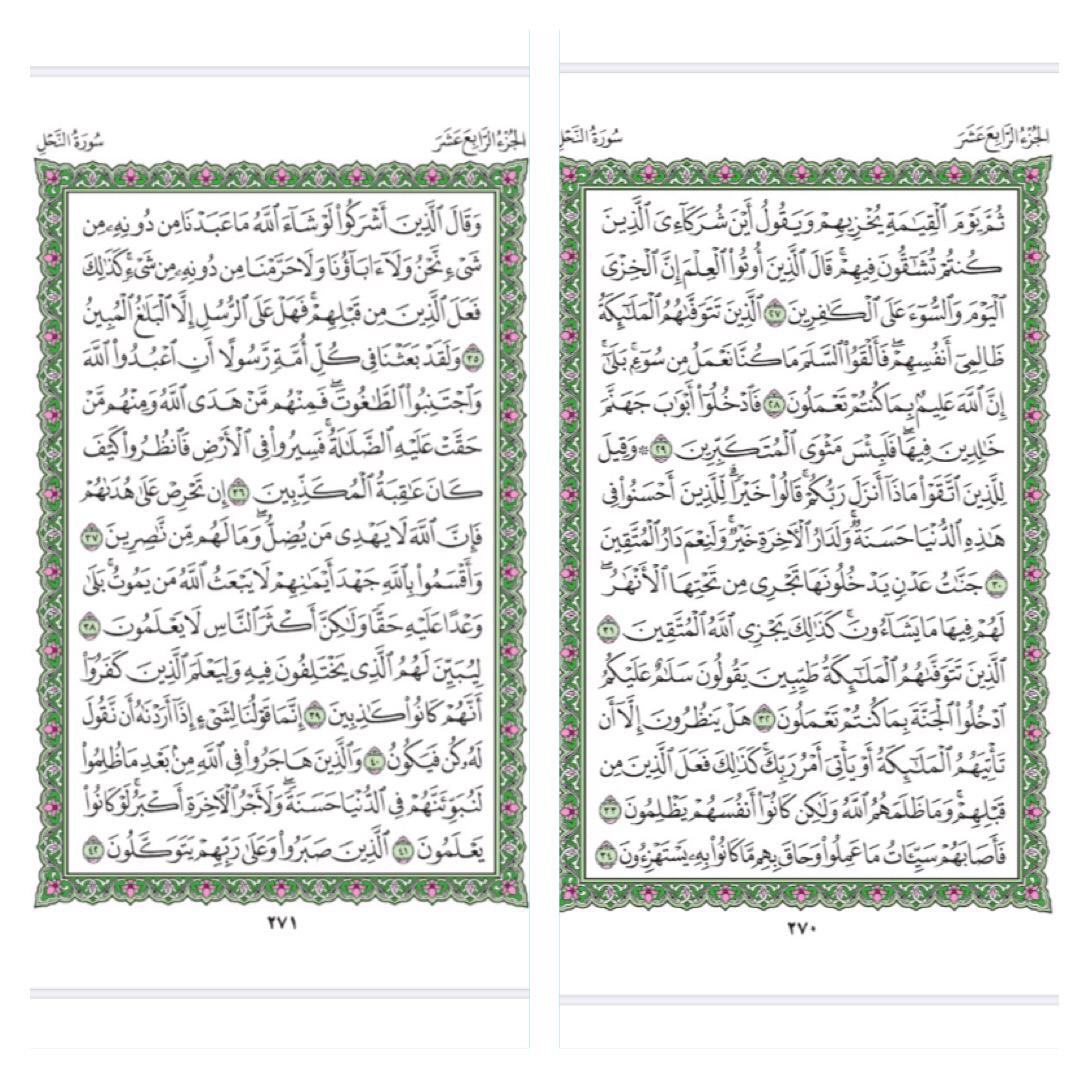 الجزء الرابع عشر
سورة النحل
ثُمَّ يَوْمَ ٱلْقِيَٰمَةِ يُخْزِيهِمْ وَيَقُولُ أَيْنَ شُرَكَآءِىَ ٱلَّذِينَ
كُنتُمْ تُشَٰٓقُّونَ فِيهِمْ ۚ قَالَ ٱلَّذِينَ أُوتُوا۟ ٱلْعِلْمَ إِنَّ ٱلْخِزْىَ
ٱلْيَوْمَ وَٱلسُّوٓءَ عَلَى ٱلْكَٰفِرِينَ ٢٧ ٱلَّذِينَ تَتَوَفَّىٰهُمُ ٱلْمَلَٰٓئِكَةُ
ظَالِمِىٓ أَنفُسِهِمْ ۖ فَأَلْقَوُا۟ ٱلسَّلَمَ مَا كُنَّا نَعْمَلُ مِن سُوٓءٍۭ ۚ بَلَىٰٓ
إِنَّ ٱللَّهَ عَلِيمٌۢ بِمَا كُنتُمْ تَعْمَلُونَ ٢٨ فَٱدْخُلُوٓا۟ أَبْوَٰبَ جَهَنَّمَ
خَٰلِدِينَ فِيهَا ۖ فَلَبِئْسَ مَثْوَى ٱلْمُتَكَبِّرِينَ ٢٩ ۞ وَقِيلَ
لِلَّذِينَ ٱتَّقَوْا۟ مَاذَآ أَنزَلَ رَبُّكُمْ ۚ قَالُوا۟ خَيْرًا ۗ لِّلَّذِينَ أَحْسَنُوا۟ فِى
هَٰذِهِ ٱلدُّنْيَا حَسَنَةٌ ۚ وَلَدَارُ ٱلْءَاخِرَةِ خَيْرٌ ۚ وَلَنِعْمَ دَارُ ٱلْمُتَّقِينَ
٣٠ جَنَّٰتُ عَدْنٍ يَدْخُلُونَهَا تَجْرِى مِن تَحْتِهَا ٱلْأَنْهَٰرُ ۖ
لَهُمْ فِيهَا مَا يَشَآءُونَ ۚ كَذَٰلِكَ يَجْزِى ٱللَّهُ ٱلْمُتَّقِينَ ٣١
ٱلَّذِينَ تَتَوَفَّىٰهُمُ ٱلْمَلَٰٓئِكَةُ طَيِّبِينَ ۙ يَقُولُونَ سَلَٰمٌ عَلَيْكُمُ
ٱدْخُلُوا۟ ٱلْجَنَّةَ بِمَا كُنتُمْ تَعْمَلُونَ ٣٢ هَلْ يَنظُرُونَ إِلَّآ أَن
تَأْتِيَهُمُ ٱلْمَلَٰٓئِكَةُ أَوْ يَأْتِىَ أَمْرُ رَبِّكَ ۚ كَذَٰلِكَ فَعَلَ ٱلَّذِينَ مِن
قَبْلِهِمْ ۚ وَمَا ظَلَمَهُمُ ٱللَّهُ وَلَٰكِن كَانُوٓا۟ أَنفُسَهُمْ يَظْلِمُونَ ٣٣
فَأَصَابَهُمْ سَيِّـَٔاتُ مَا عَمِلُوا۟ وَحَاقَ بِهِم مَّا كَانُوا۟ بِهِۦ يَسْتَهْزِءُونَ ٣٤
٢٧٠
الجزء الرابع عشر
سورة النحل
وَقَالَ ٱلَّذِينَ أَشْرَكُوا۟ لَوْ شَآءَ ٱللَّهُ مَا عَبَدْنَا مِن دُونِهِۦ مِن
شَىْءٍ نَّحْنُ وَلَآ ءَابَآؤُنَا وَلَا حَرَّمْنَا مِن دُونِهِۦ مِن شَىْءٍ ۚ كَذَٰلِكَ
فَعَلَ ٱلَّذِينَ مِن قَبْلِهِمْ ۚ فَهَلْ عَلَى ٱلرُّسُلِ إِلَّا ٱلْبَلَٰغُ ٱلْمُبِينُ
٣٥ وَلَقَدْ بَعَثْنَا فِى كُلِّ أُمَّةٍ رَّسُولًا أَنِ ٱعْبُدُوا۟ ٱللَّهَ
وَٱجْتَنِبُوا۟ ٱلطَّٰغُوتَ ۖ فَمِنْهُم مَّنْ هَدَى ٱللَّهُ وَمِنْهُم مَّنْ
حَقَّتْ عَلَيْهِ ٱلضَّلَٰلَةُ ۚ فَسِيرُوا۟ فِى ٱلْأَرْضِ فَٱنظُرُوا۟ كَيْفَ
كَانَ عَٰقِبَةُ ٱلْمُكَذِّبِينَ ٣٦ إِن تَحْرِصْ عَلَىٰ هُدَىٰهُمْ
فَإِنَّ ٱللَّهَ لَا يَهْدِى مَن يُضِلُّ ۖ وَمَا لَهُم مِّن نَّٰصِرِينَ ٣٧
وَأَقْسَمُوا۟ بِٱللَّهِ جَهْدَ أَيْمَٰنِهِمْ ۙ لَا يَبْعَثُ ٱللَّهُ مَن يَمُوتُ ۚ بَلَىٰ
وَعْدًا عَلَيْهِ حَقًّا وَلَٰكِنَّ أَكْثَرَ ٱلنَّاسِ لَا يَعْلَمُونَ ٣٨
لِيُبَيِّنَ لَهُمُ ٱلَّذِى يَخْتَلِفُونَ فِيهِ وَلِيَعْلَمَ ٱلَّذِينَ كَفَرُوٓا۟
أَنَّهُمْ كَانُوا۟ كَٰذِبِينَ ٣٩ إِنَّمَا قَوْلُنَا لِشَىْءٍ إِذَآ أَرَدْنَٰهُ أَن نَّقُولَ
لَهُۥ كُن فَيَكُونُ ٤٠ وَٱلَّذِينَ هَاجَرُوا۟ فِى ٱللَّهِ مِنۢ بَعْدِ مَا ظُلِمُوا۟
لَنُبَوِّئَنَّهُمْ فِى ٱلدُّنْيَا حَسَنَةً ۖ وَلَأَجْرُ ٱلْءَاخِرَةِ أَكْبَرُ ۚ لَوْ كَانُوا۟
يَعْلَمُونَ ٤١ ٱلَّذِينَ صَبَرُوا۟ وَعَلَىٰ رَبِّهِمْ يَتَوَكَّلُونَ ٤٢
٢٧١